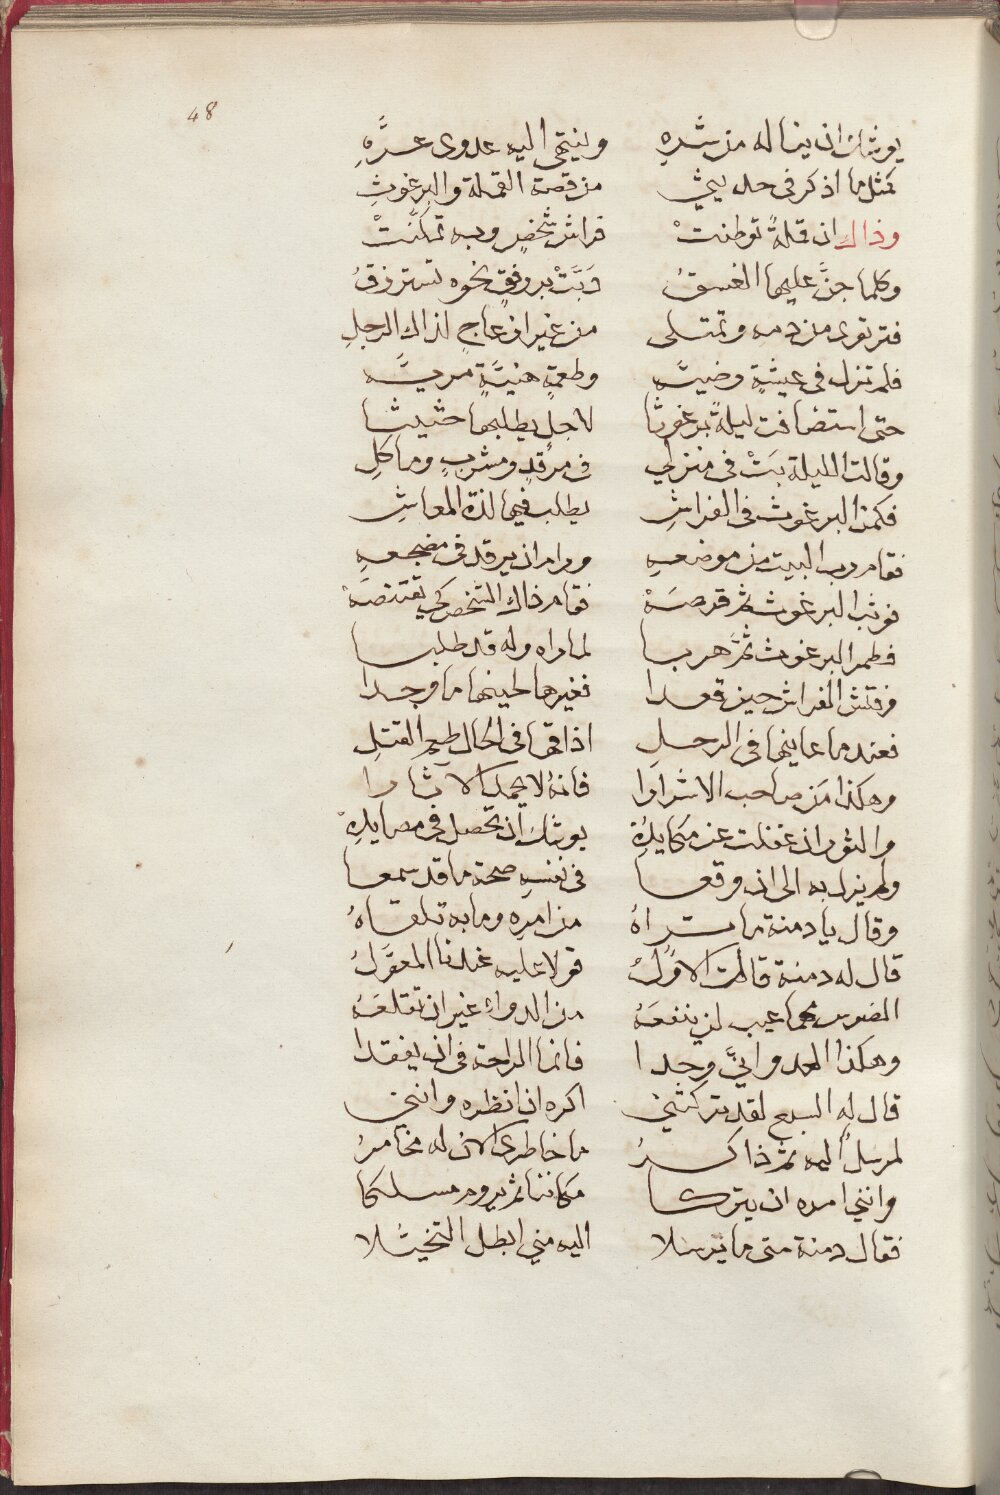 48
يوشك ان يناله من شره وينتهي اليه عدوى عره
كمثل ما اذكر في حديثي من قصة القملة والبرغوث
وذاك ان قملة توطنت فراش شخص وبه تمكنت
وكلما جن عليها الغسق دبت برفق نحوه تسترزق
فترتوى من دمه وتمتلى من غير ازعاج لذاك الرجل
فلم تزل في عيشة رضية وطعمة هنية مرية
حتى استضافت ليلة برغوثا لاجل يطلبها حثيثا
وقالت الليلة بت في منزلي في مرقد ومشرب وماكل
فكمن البرغوث في الفراش يطلب فيها لذة المعاش
فقام رب البيت من موضعه ورام ان يرقد في مضجعه
فوثب البرغوث ثم قرصه فقام ذاك الشخص كي يقتنصه
فطمر البرغوث ثم هربا لما راه وله قد طلبا
وفتش الفراش حين قعدا فغيرها لحينها ما وجدا
فعندما عاينها في الرحل اذاقها في الحال طعم القتل
وهكذا من صاحب الاشرارا فانه لا يحمد الآثارا
والثور ان غفلت عن مكايده يوشك ان تحصل في مصايده
ولم يزل به الى ان وقعا في نفسه صحة ما قد سمعا
وقال يا دمنة ما تراه من امره وما به تلقاه
قال له دمنة قالت الاول قولا عليه عندنا المعول
الضرس مهما عيب لن ينفعه من الدواء غير ان تقلعه
وهكذا العدو اني وجدا فانما الراحة في ان يفقدا
قال له السبع لقد تركتني اكره ان انظره وانني
لمرسل اليه ثم ذاكر ما خاطري الان له مخامر
وانني امره ان يتركا مكاننا ثم يروم مسلكا
فقال دمنة متى ما يرسلا اليه مني ابطل التخيلا